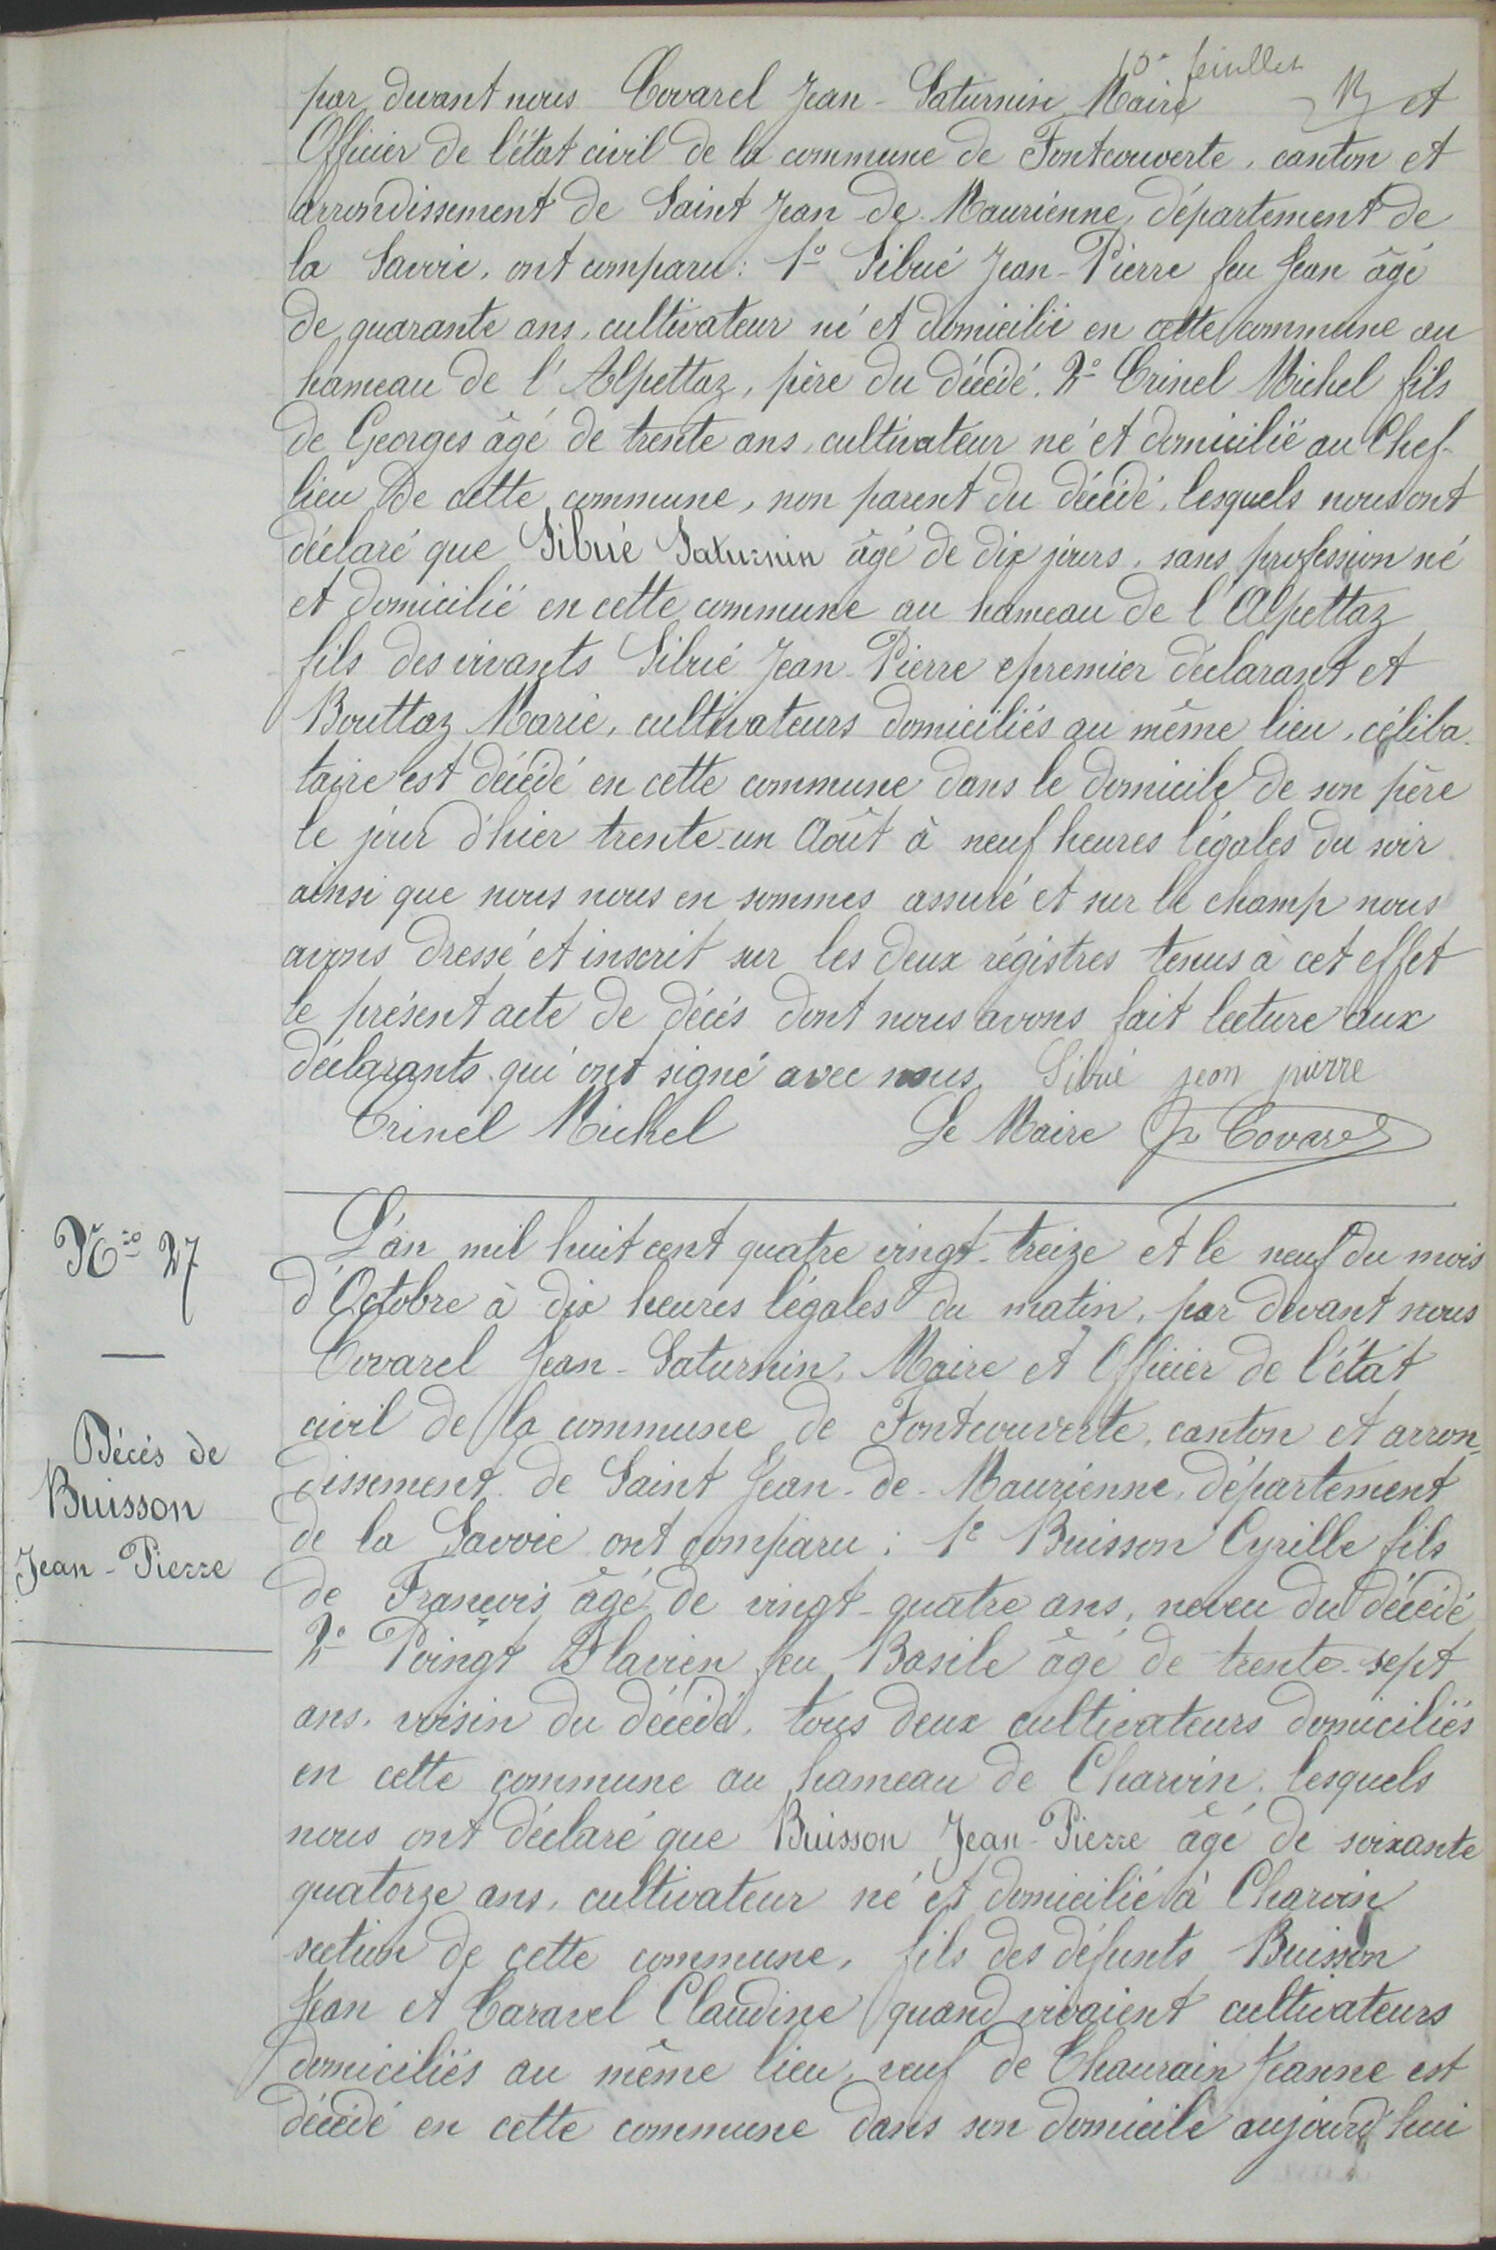 10e feuillet
par devant nous Covarel Jean-Saturnin Maire et
Officier de l'état civil de la commune de Fontcouverte, canton et
arrondissement de Saint Jean-de-Maurienne, département de
la Savoie, ont comparu : 1o Sibué Jean-Pierre feu Jean âgé
de quarante ans, cultivateur né et domicilié en cette commune au
hameau de l'Alpettaz, père du décédé. 2o Crinel Michel fils
de Georges âgé de trente ans, cultivateur né et domicilié au Chef-
lieu de cette commune, non parent du décédé, lesquels nous ont
déclaré que Sibué Saturnin âgé de dix jours, sans profession né
et domicilié en cette commune au hameau de l'Alpettaz
fils des vivants Sibué Jean-Pierre premier déclarant et
Bouttaz Marie, cultivateurs domiciliés au même lieu, céliba-
taire est décédé en cette commune dans le domicile de son père
le jour d'hier trente-un Août à neuf heures légales du soir
ainsi que nous nous en sommes assuré et sur le champ nous
avons dressé et inscrit sur les deux régistres tenus à cet effet
le présent acte de décès dont nous avons fait lecture aux
déclarants qui ont signé avec nous. Sibué jean pierre
Crinel Michel Le Maire Covarel
No 27
Décès de
Buisson
Jean-Pierre
L'an mil huit cent quatre vingt-treize et le neuf du mois
d'Octobre à dix heures légales du matin, par devant nous
Covarel Jean-Saturnin, Maire et Officier de l'état
civil de la commune de Fontcouverte, canton et arron-
dissement de Saint Jean-de-Maurienne, département
de la Savoie ont comparu : 1o Buisson Cyrille fils
de François âgé de vingt-quatre ans, neveu du décédé
2o Poingt Flavien feu Basile âgé de trente-sept
ans, voisin du décédé, tous deux cultivateurs domiciliés
en cette commune au hameau de Charvin, lesquels
nous ont déclaré que Buisson Jean-Pierre âgé de soixante
quatorze ans, cultivateur né et domicilié à Charvin
section de cette commune, fils des défunts Buisson
Jean et Cararel Claudine quand vivaient cultivateurs
domiciliés au même lieu, veuf de Chaurain Jeanne est
décédé en cette commune dans son domicile aujourd'hui